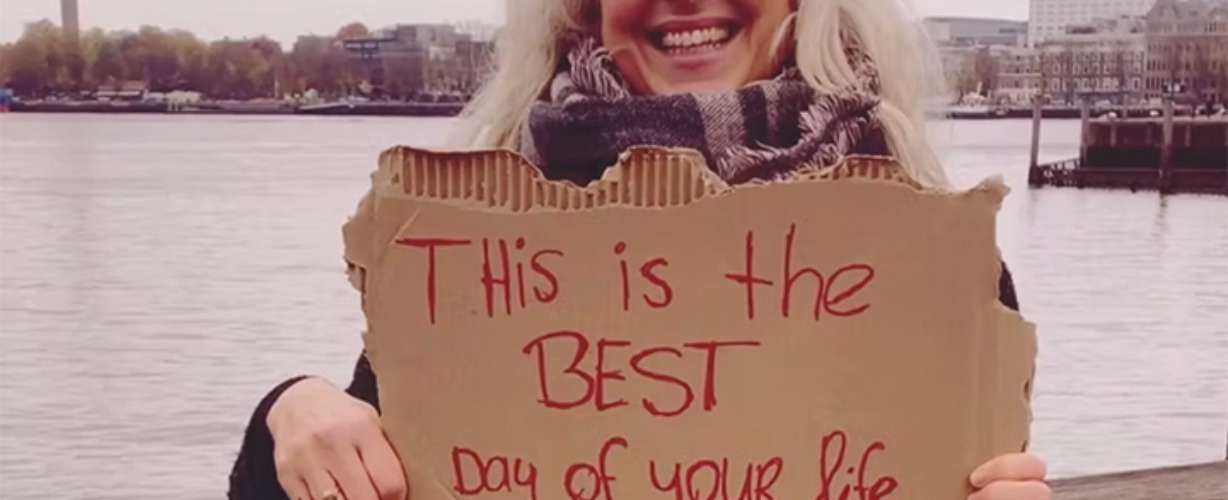 THis is the
BEST
Day of YOUR life